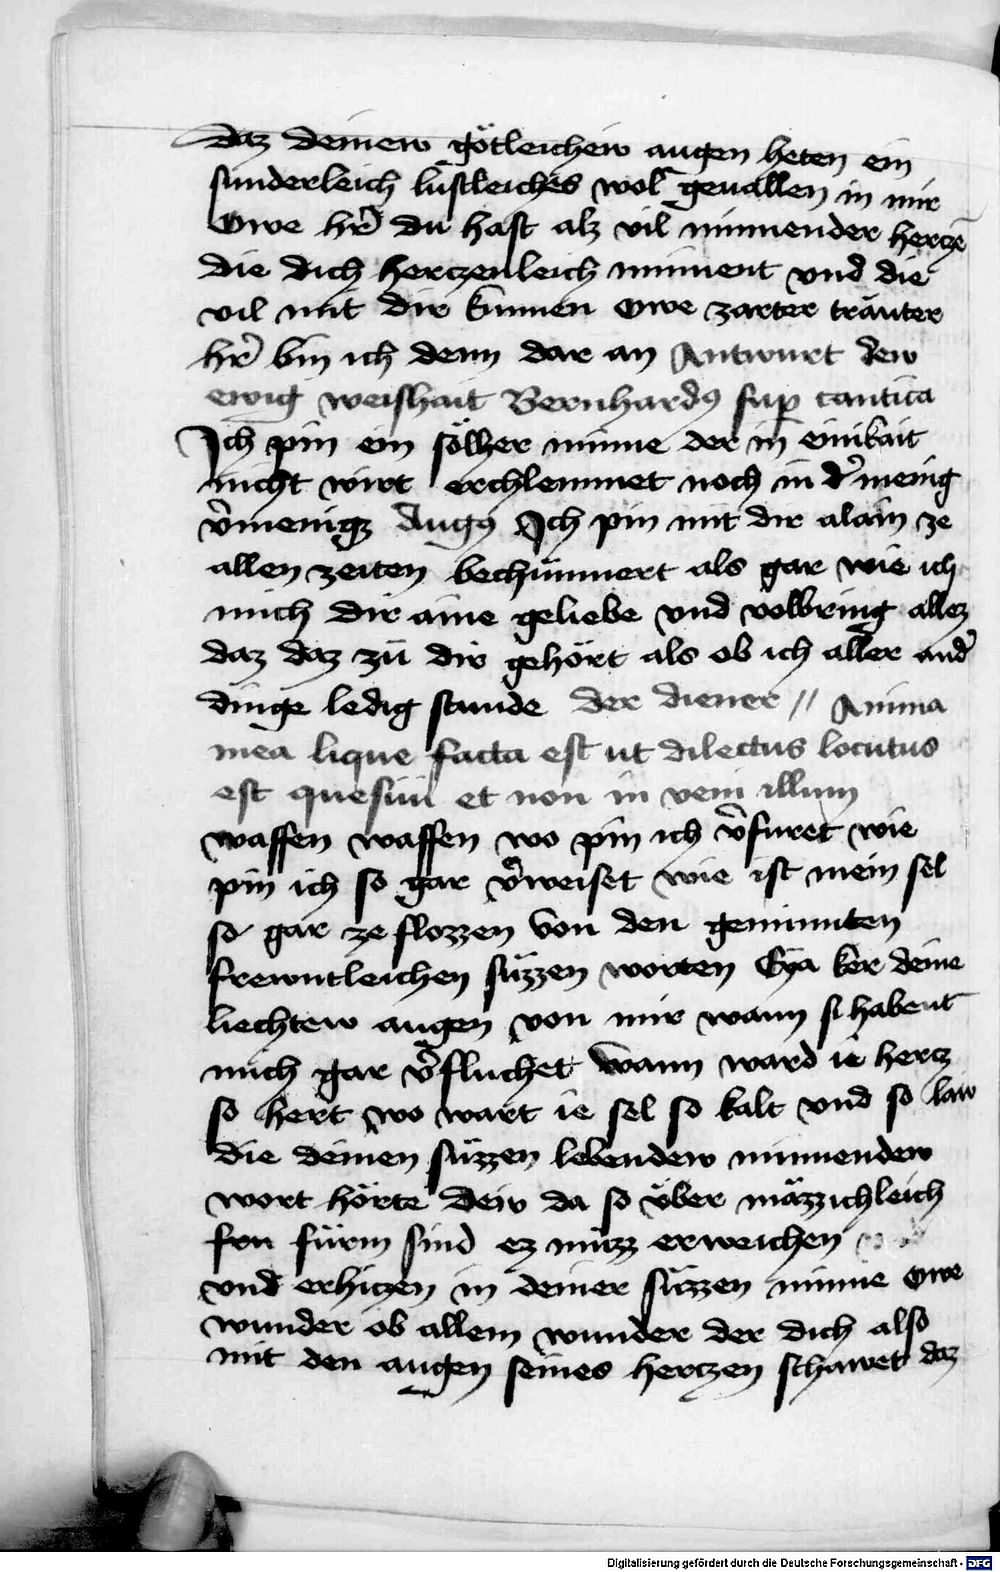 daz deinew götleichew augen heten ein
sunderleich lustleiches wol geuallen in mir
Owe hr̄ du hast alz vil minnender herczē
die dich herczenleich minnent vnd die
vil mit dir kunnen Owe zarter träuter
hr̄ bin ich denn dar an Antwurt dew
ewig weishait Bernhardꝯ suꝑ cantica
Ich pin ein sölher minne der in einikait
nicht wirt erchlemmet noch in d̾ menig
v̾meniget Augꝯ Ich pin mit dir alain ze
allen zeiten bechümmert als gar wie ich
mich dir aine geliebe vnd volbring allez
daz daz zů dir gehört als ob ich aller and̾
dinge ledig stunde der diener // Anima
mea lique facta est ut dilectus locutus
est quesiui et non in veni illum
waffen waffen wo pin ich v̾furet wie
pin ich so gar v̾weiset wie ist mein sel
so gar ze flozzen von den geminnten
frewntleichen süzzen worten Eya ker deine
liechtew augen von mir wann si habent
mich gar v̾fluchet Wann ward ie hercz
so hert wo wart ie sel so kalt vnd so law
die deinen süzzen lebendew minnendew
wort hörte dew da so über mäzzichleich
fürin sind ez müzz erweichen
vnd erhiczen in deiner süzzen minne Owe
wunder ob allem wunder der dich also
mit den augen seines herczen schawet daz
Digitalisierung gefördert durch die Deutsche Forschungsgemeinschaft - DFG